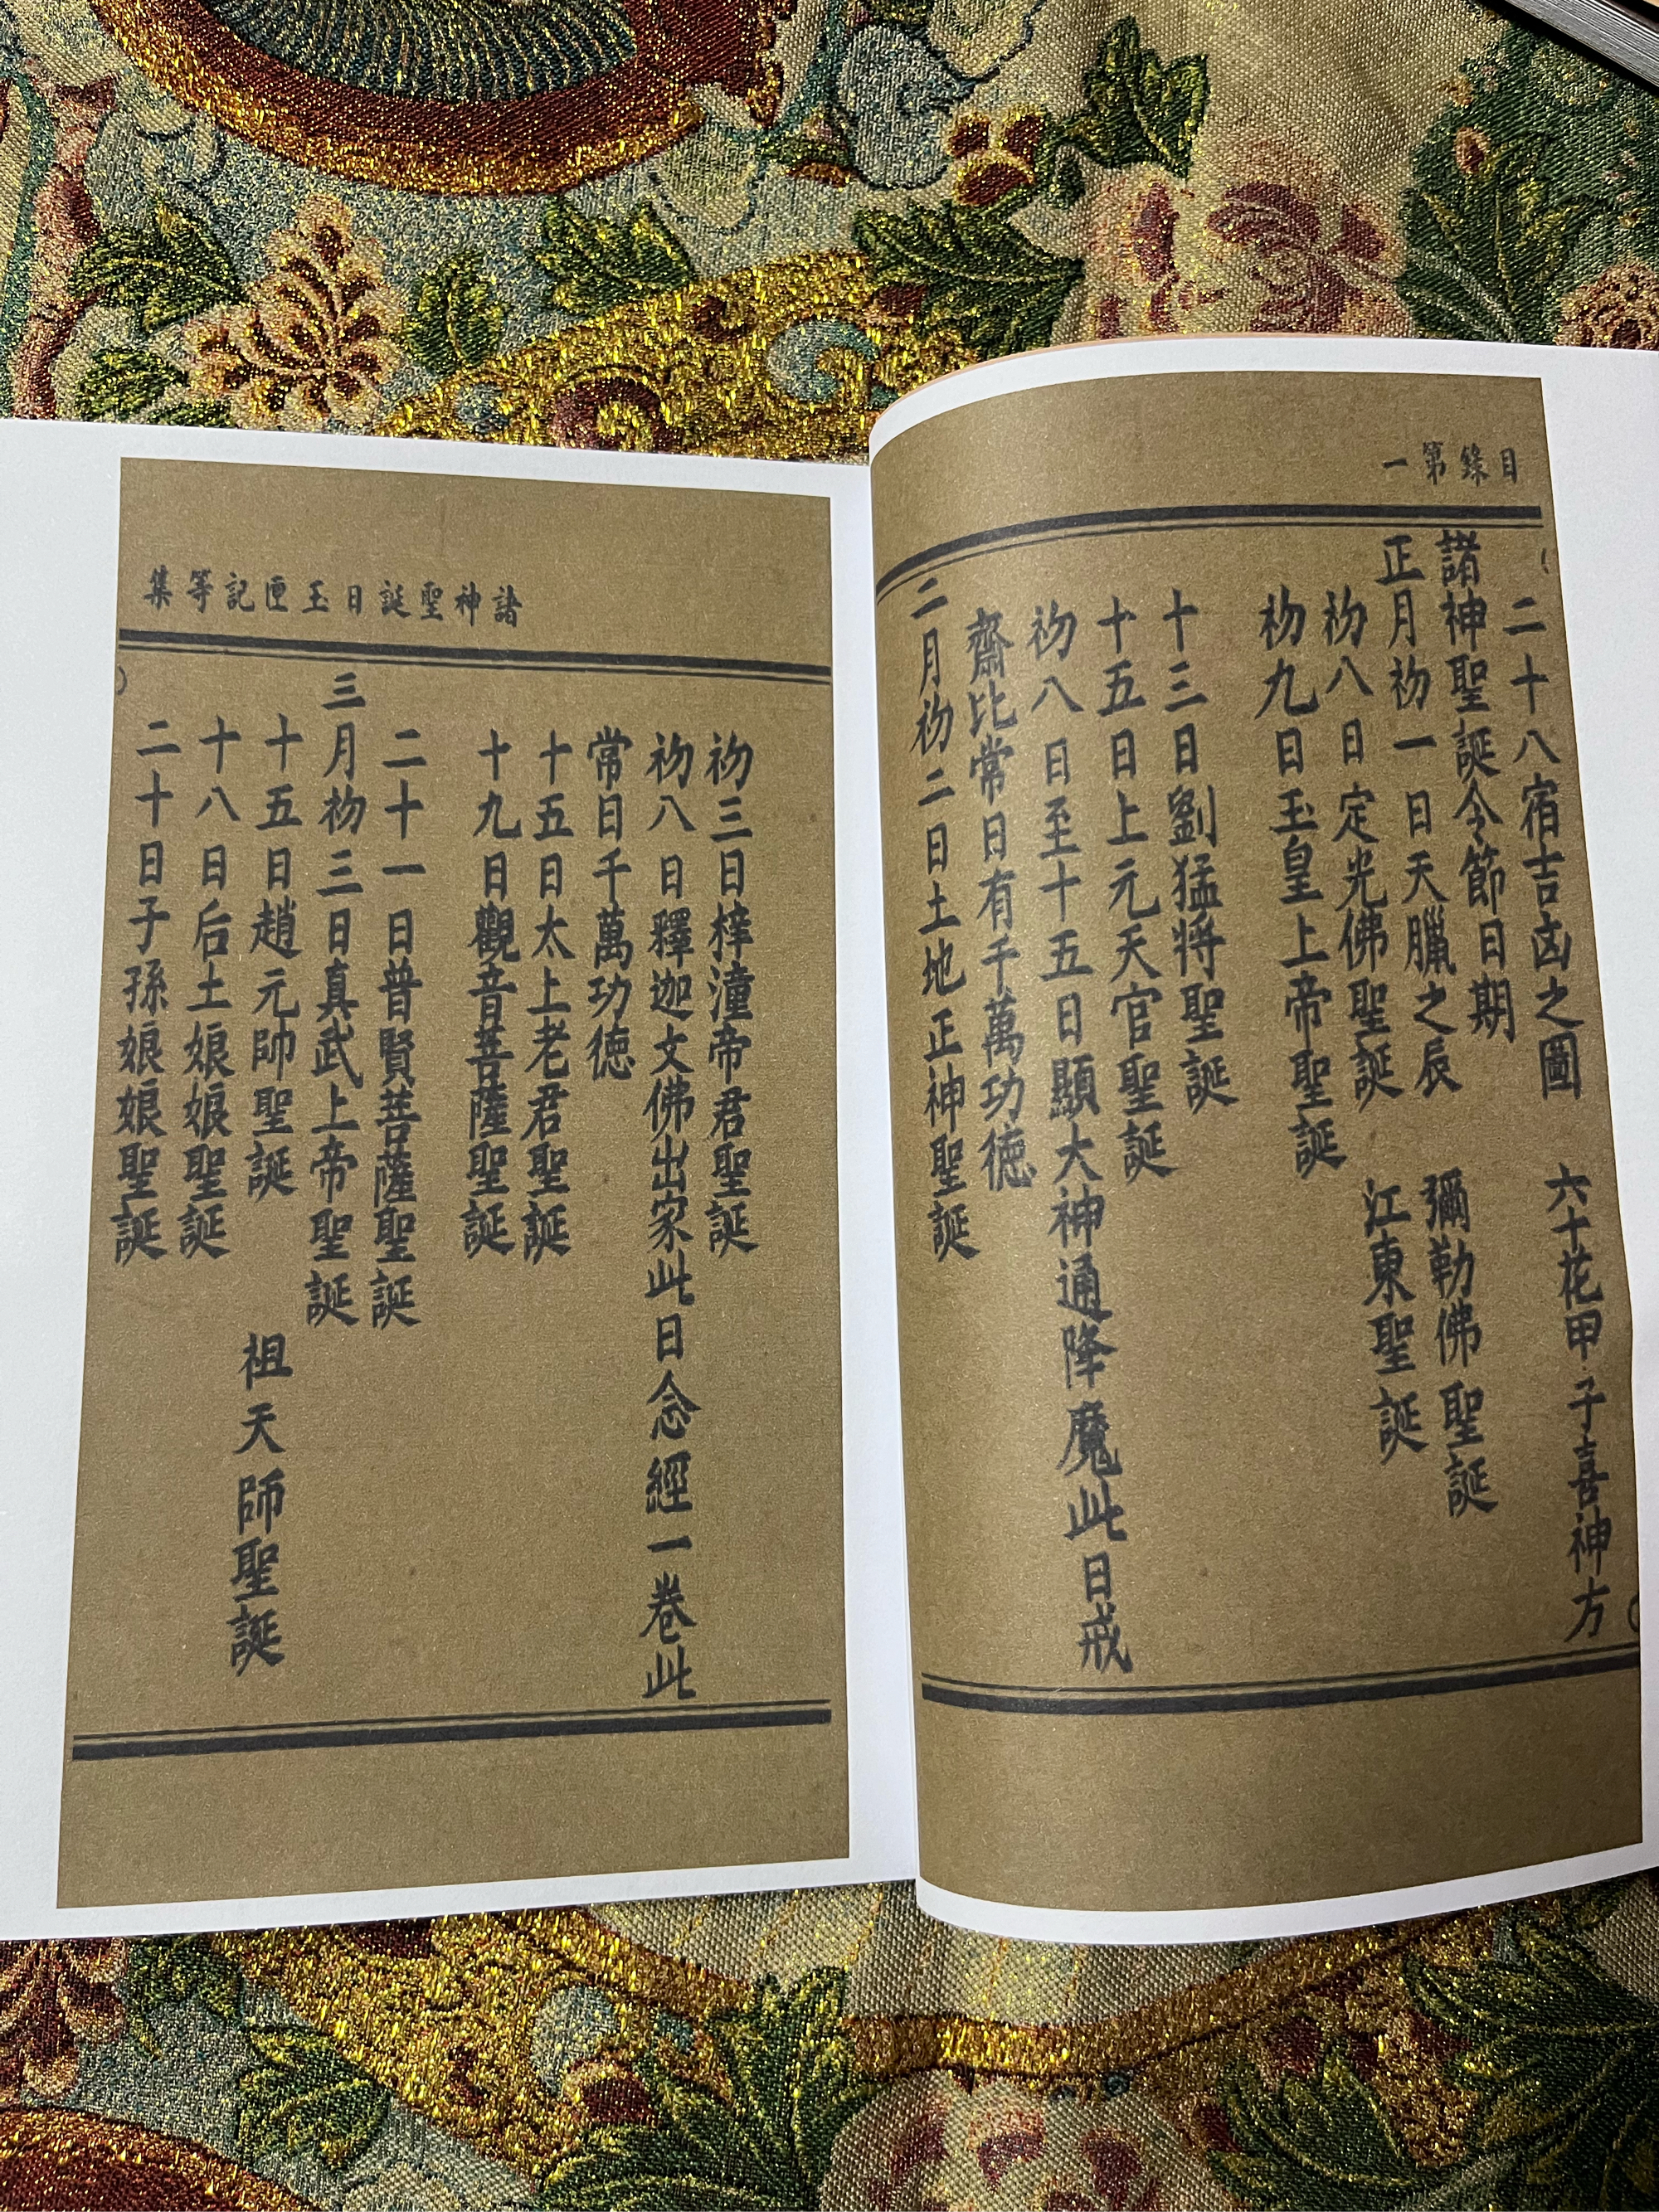 目錄第一
二十八宿吉凶之圖　六十花甲子喜神方
諸神聖誕令節日期
正月初一日天臘之辰　彌勒佛聖誕
初八日定光佛聖誕　江東聖誕
初九日玉皇上帝聖誕
十三日劉猛將聖誕
十五日上元天官聖誕
初八日至十五日顯大神通降魔此日戒
齋比常日有千萬功德
二月初二日土地正神聖誕
諸神聖誕日玉匣記等集
初三日梓潼帝君聖誕
初八日釋迦文佛出家此日念經一卷此
常日千萬功德
十五日太上老君聖誕
十九日觀音菩薩聖誕
二十一日普賢菩薩聖誕
三月初三日真武上帝聖誕
十五日趙元帥聖誕　祖天師聖誕
十八日后土娘娘聖誕
二十日子孫娘娘聖誕